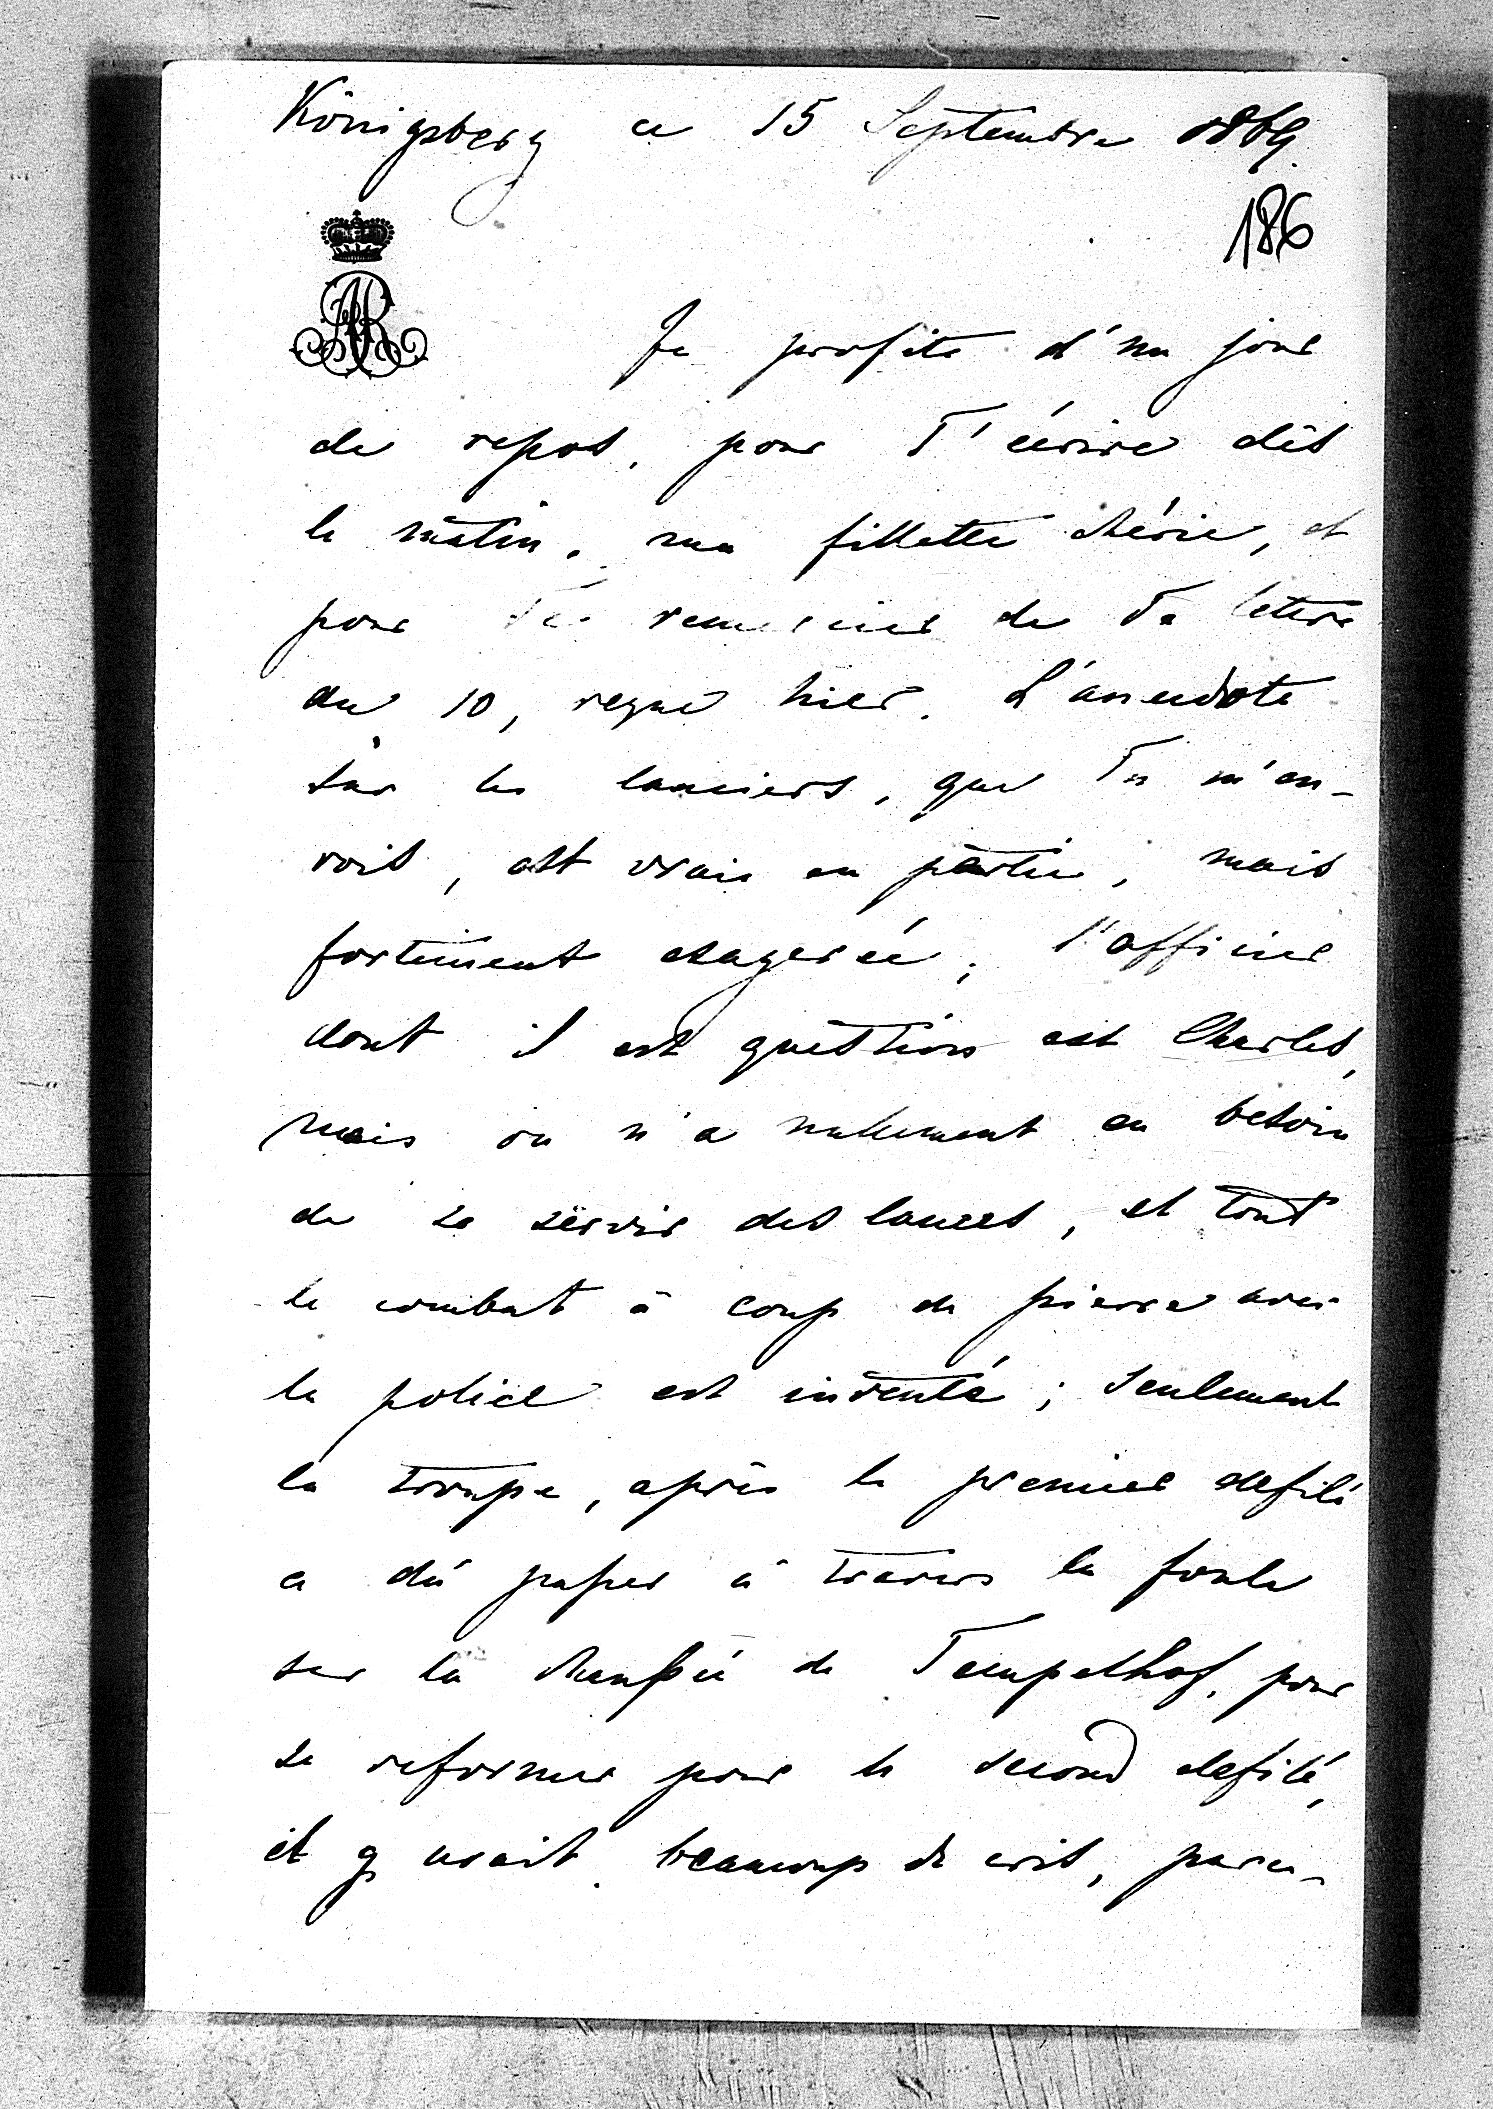 Königsberg ce 15 Septembre 1869.
186
AR
Je profite d'un jour
de repos, pour T'écrire dès
le matin, ma fillette chérie, et
pour Te remercier de Ta lettre
du 10, reçue hier. L'anecdote
sur les lanciers, que Tu m'en-
vois, est vraie en partie, mais
fortement exagerée; l'officier
dont il est question est Charles,
mais on n'a nullement eu besoin
de se servir des lances, et tout
le combat à coup de pierre avec
la police est inventé; seulement
la troupe, après le premier defilé
a dû passer à travers la foule
sur la chaussée de Tempelhof, pour
se reformer pour le second defilé,
il y avait beaucoup de cris, parce-